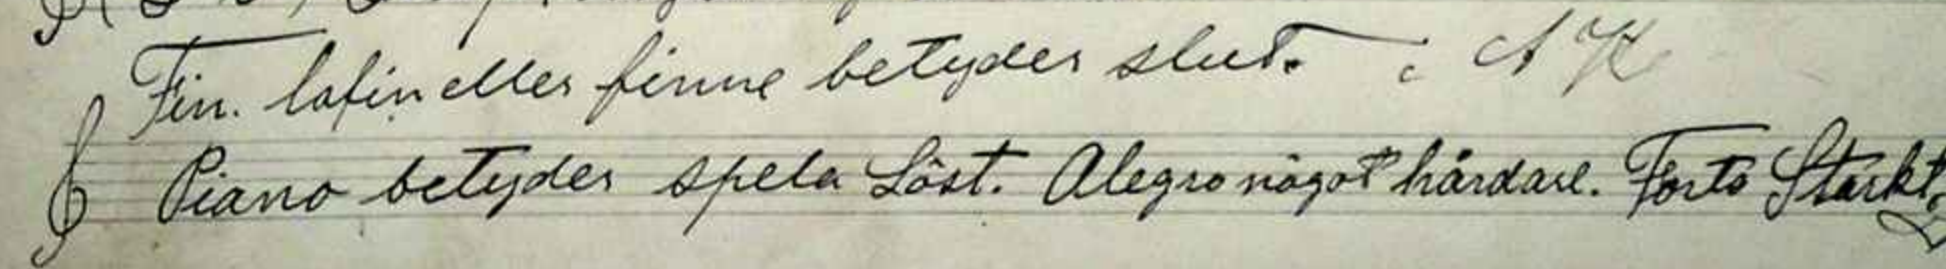 Fin. lafin eller finne betyder slut. A K
Piano betyder spela Löst. Alegro något hårdare. Forto Starkt.